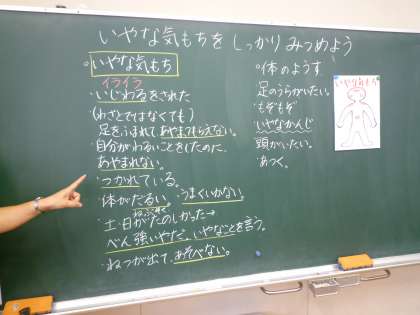 いやな気もちを しっかり みつめよう
○いやな気もち
イライラ
・いじわるをされた
(わざとではなくても)
足をふまれてあやまってもらえない。
・自分がわるいことをしたのに、
あやまれない。
・つかれている。
体がだるい。うまくいかない。
・土・日がたのしかった→
べん強いやだ、いやなことを言う。
・ねつが出て、あそべない。
○体のようす
足のうらがいたい。
・もぞもぞ
いやなかんじ
頭がいたい。
・あつく。
いやな気もち